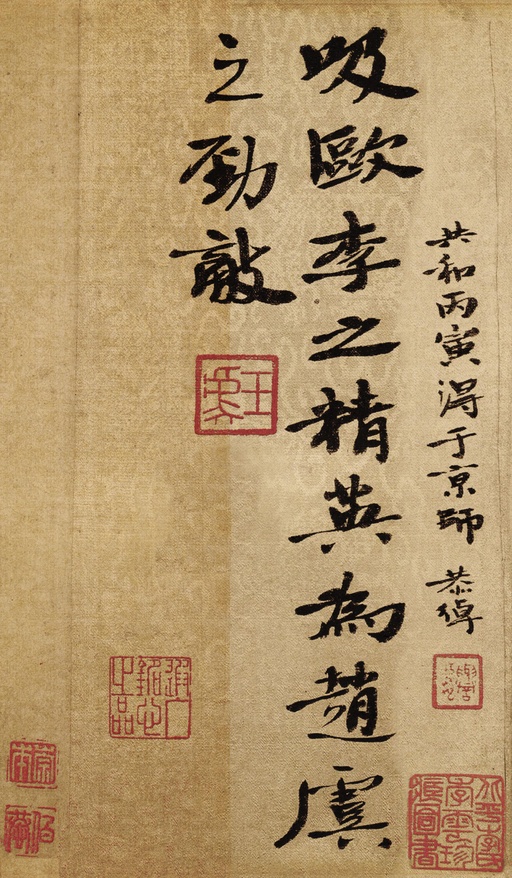 共和丙寅得于京師 恭綽
吸歐李之精英為趙虞
之勁敵